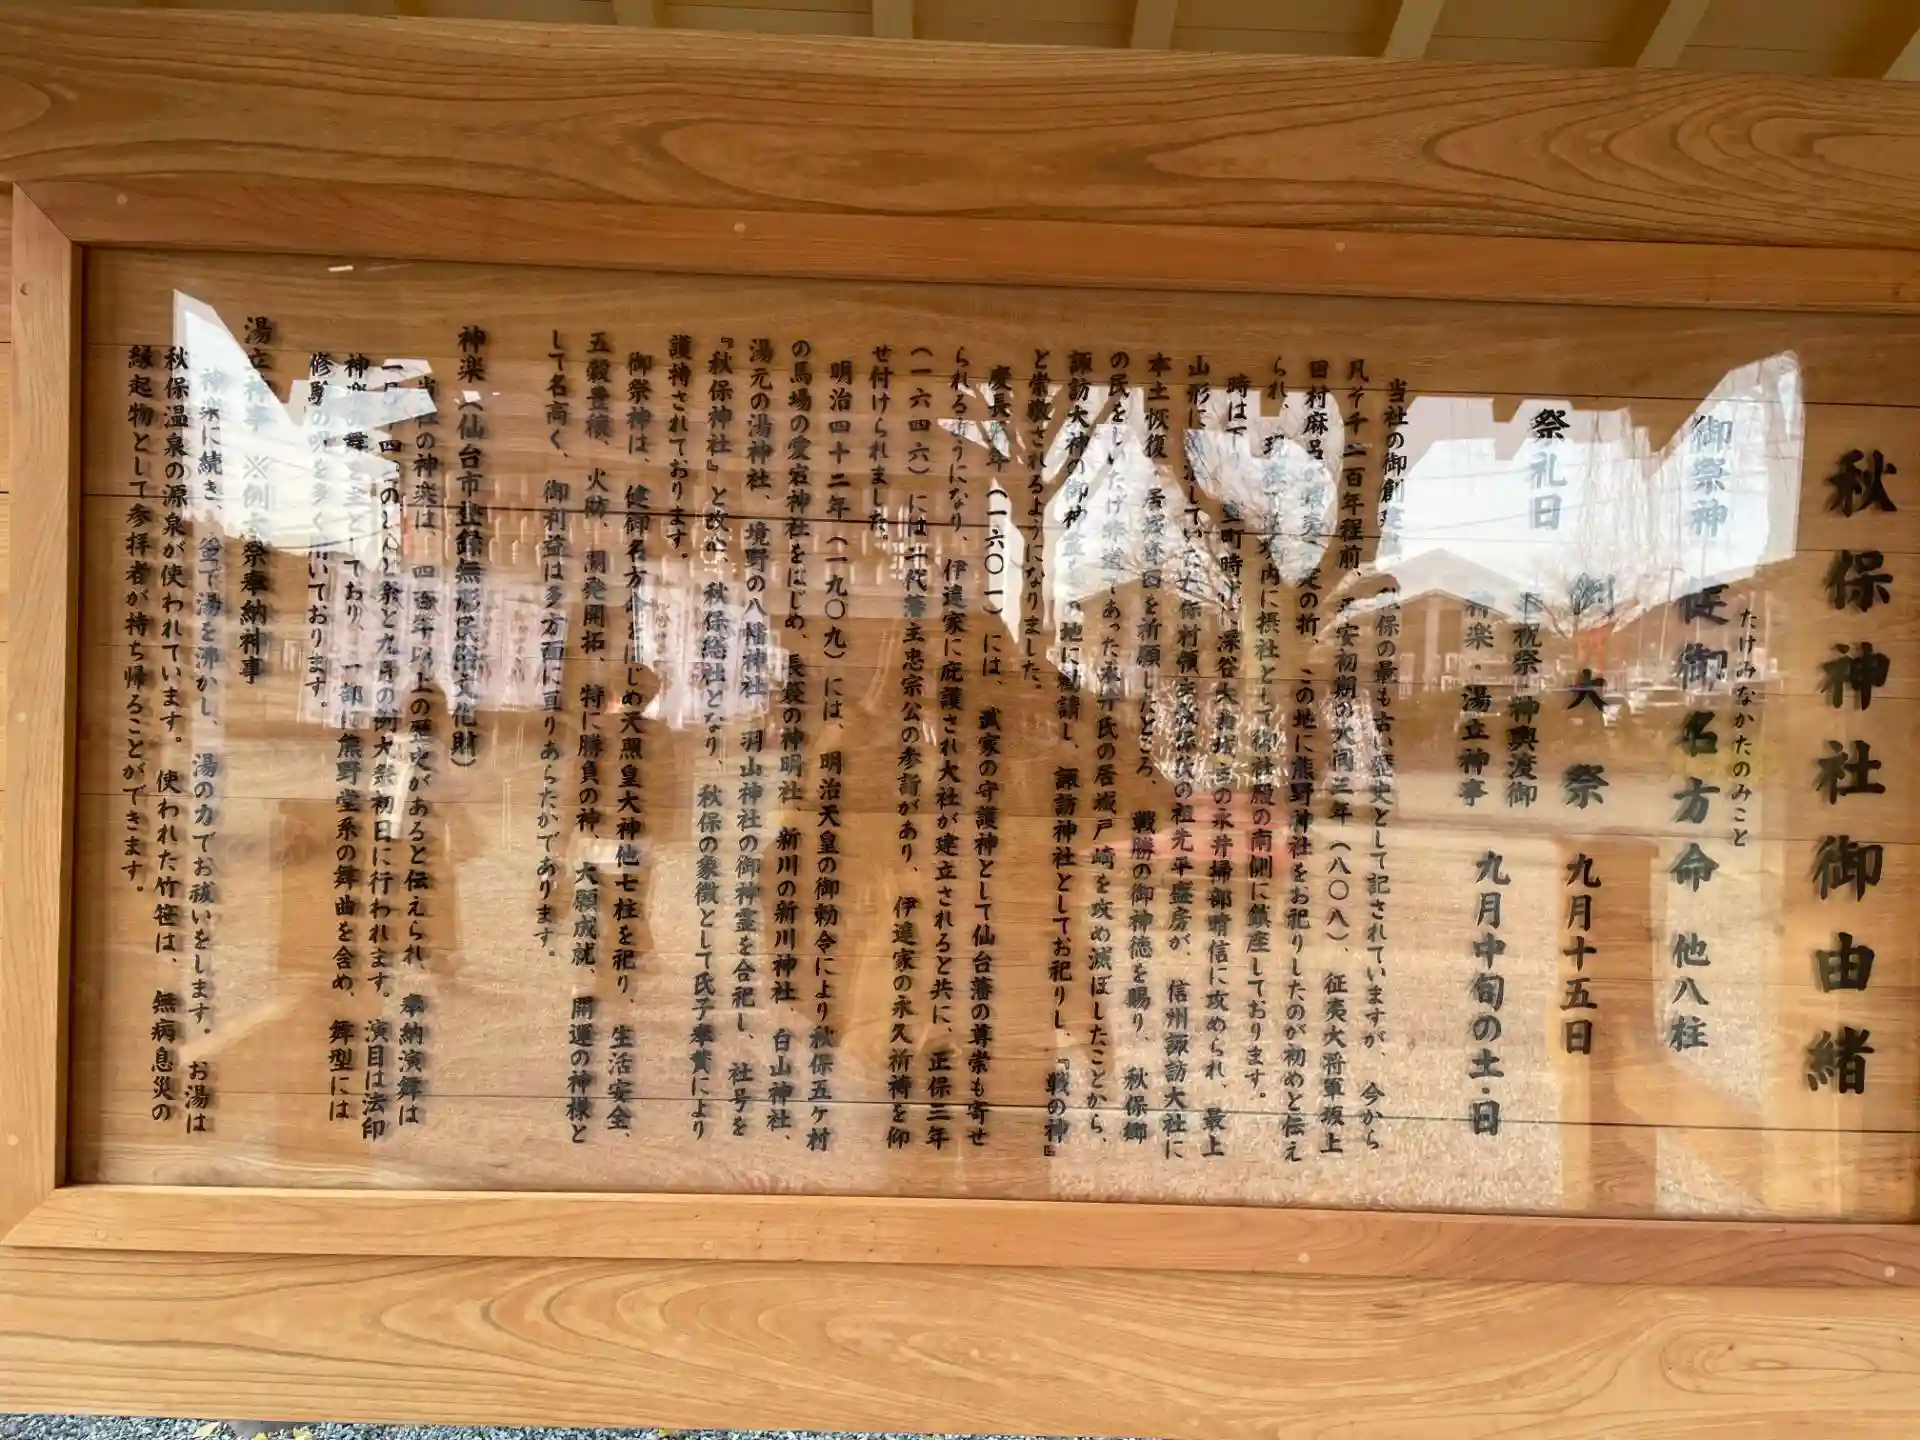 秋保神社御由緒
たけみなかたのみこと
御祭神 健御名方命 他八柱
祭礼日 例大祭 九月十五日
祝祭・神輿渡御
神楽・湯立神事 九月中旬の土・日
当社の御創建は 秋保の最も古い歴史として記されていますが、今から
凡そ千二百年程前、平安初期の大同三年(八〇八)、征夷大将軍坂上
田村麻呂が蝦夷平定の折、この地に熊野神社をお祀りしたのが初めと伝え
られ、現在では境内に摂社として御社殿の南側に鎮座しております。
時は下り、室町時代に深谷 の永井掃部晴信に攻められ、最上
山形に していた秋保村領主秋保氏の祖先平盛房が、信州諏訪大社に
本土恢復、居城奪回を祈願したところ、戦勝の御神徳を賜り、秋保郷
の民をしいたげ非道であった永井氏の居城戸崎を攻め滅ぼしたことから、
諏訪大神の御神霊を の地に勧請し、諏訪神社としてお祀りし、『戦の神』
と崇敬されるようになりました。
慶長 年(一六〇一)には、武家の守護神として仙台藩の尊崇も寄せ
られるようになり、伊達家に庇護され大社が建立されると共に、正保三年
(一六四六)には二代藩主忠宗公の参詣があり、伊達家の永久祈祷を仰
せ付けられました。
明治四十二年(一九〇九)には、明治天皇の御勅令により秋保五ケ村
の馬場の愛宕神社をはじめ、長袋の神明社、新川の新川神社、白山神社、
湯元の湯神社、境野の八幡神社、羽山神社の御神霊を合祀し、社号を
『秋保神社』と改め、秋保総社となり、秋保の象徴として氏子奉賛により
護持されております。
御祭神は、健御名方命をはじめ天照皇大神他七柱を祀り、生活安全、
五穀豊穣、火防、開発開拓、特に勝負の神、大願成就、開運の神様と
して名高く、御利益は多方面に亘りあらたかであります。
神楽(仙台市登録無形民俗文化財)
当社の神楽は、四百年以上の歴史があると伝えられ、奉納演舞は
一月十四日のどんと祭と九月の例大祭初日に行われます。演目は法印
神楽の舞を主としており、一部に熊野堂系の舞曲を含め、舞型には
修験の呪を多く用いております。
湯立神事 ※例大祭奉納神事
神楽に続き、釜で湯を沸かし、湯の力でお祓いをします。お湯は
秋保温泉の源泉が使われています。使われた竹笹は、無病息災の
縁起物として参拝者が持ち帰ることができます。